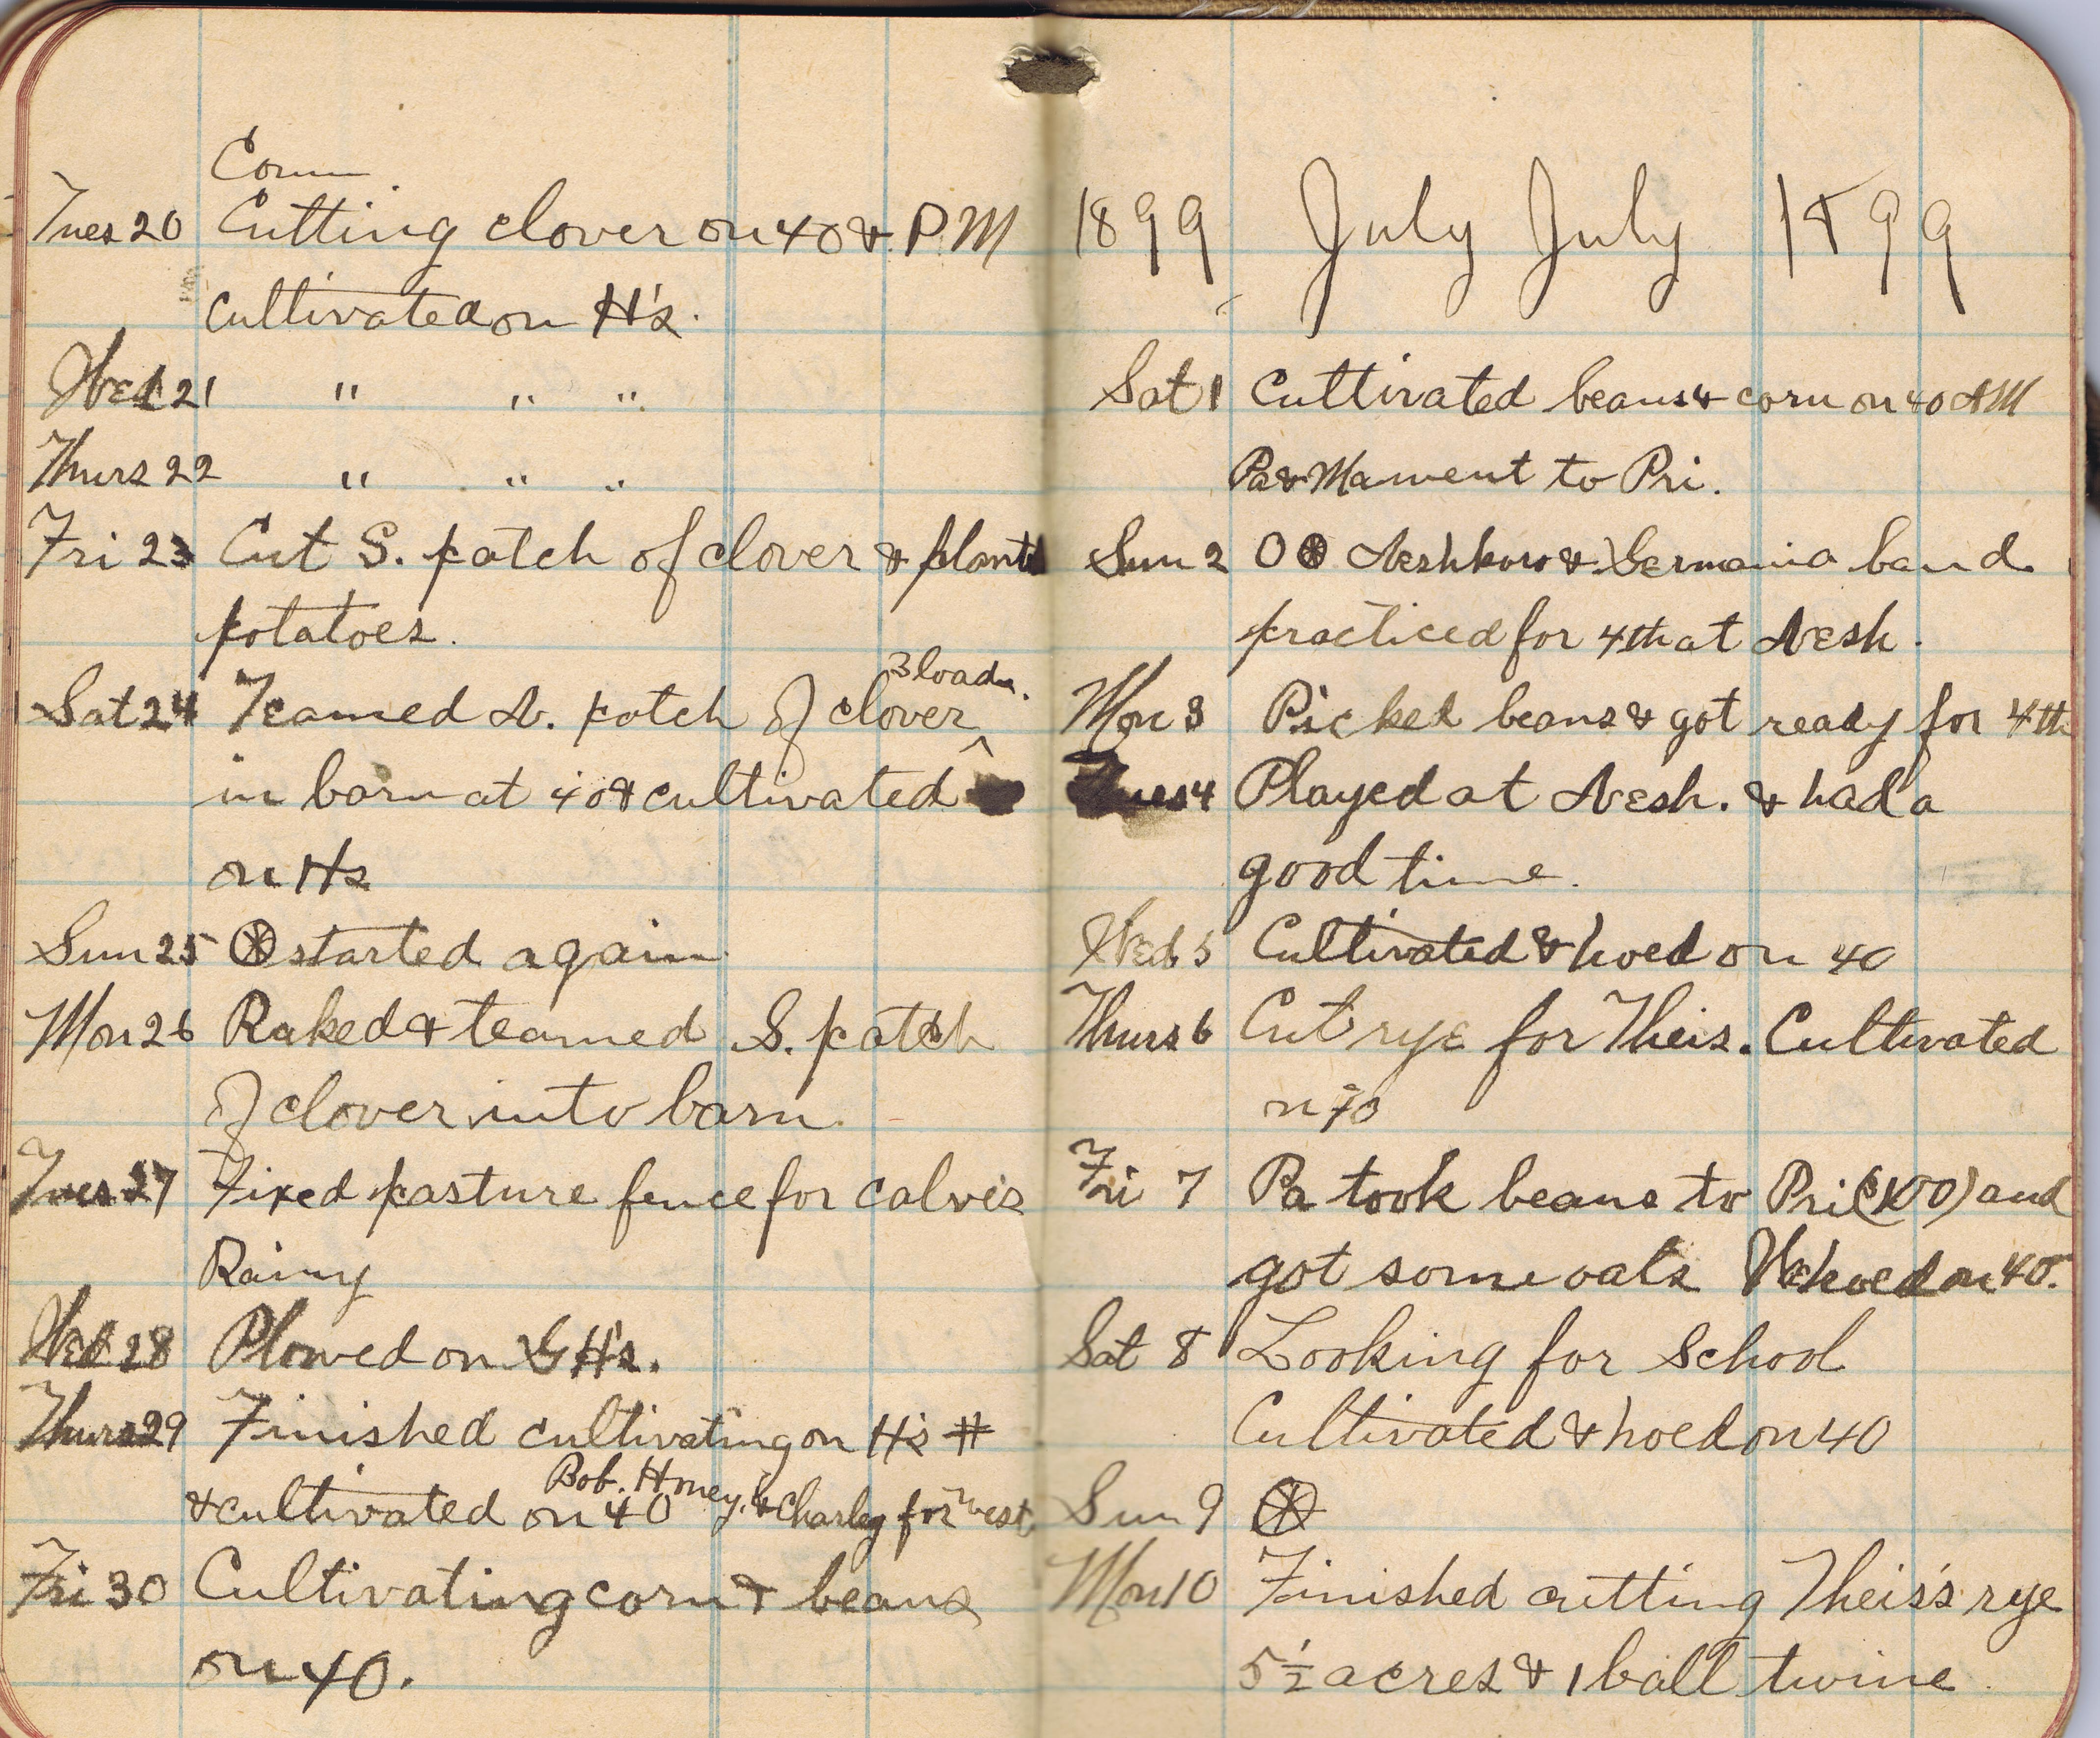 Comm
Tues 20 Cutting clover on 40 & P.M
cultivated on H's.
Wed 21 " " "
Thurs 22 " " "
Fri 23 Cut S. patch of clover & plant
potatoes.
3 loads.
Sat 24 Teamed N. patch of clover ^
in barn at 40 & cultivated
on Hs
Sun 25 ⊛ started again
Mon 26 Raked & teamed S. patch
of clover into barn.
Tues 27 Fixed pasture fence for calves
Rainy
Wed 28 Plowed on G H's.
Thurs 29 Finished cultivating on H's #
Bob. & Charley for west
& cultivated on 40
Fri 30 Cultivating corn & beans
on 40.
1899 July July 1899
Sat 1 Cultivated beans & corn on 40 AM
Pa & Ma went to Pri.
Sun 2 O ⊛ Neshkoro & Germania band
practiced for 4th at Nesh.
Mon 3 Picked beans & got ready for 4th
Tues 4 Played at Nesh. & had a
good time.
Wed 5 Cultivated & hoed on 40
Thurs 6 Cut rye for Theis. Cultivated
on 40
Fri 7 Pa took beans to Pri and
got some oats We hoed on 40.
Sat 8 Looking for School
Cultivated & hoed on 40
Sun 9 ⊛
Mon 10 Finished cutting Theis's rye
5½ acres & 1 ball twine